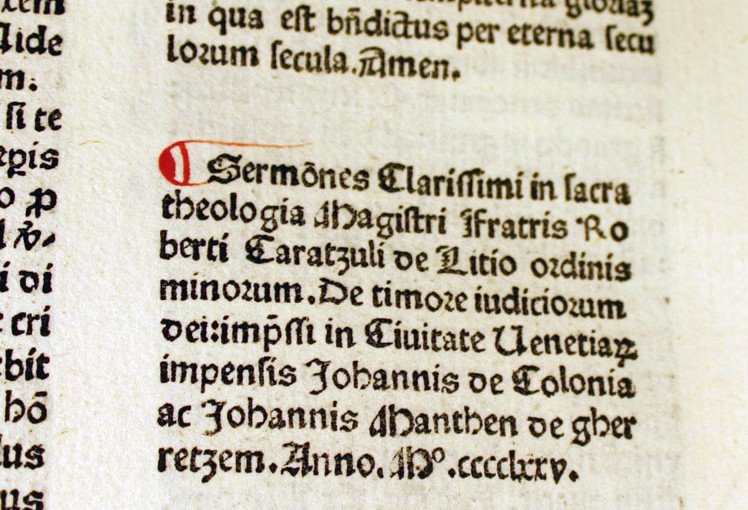 in qua est bn̄dictus per eterna secu
lorum secula. Amen.
Sermōnes Clarissimi in sacra
theologia Magistri Fratris Ro
berti Caratzuli de Litio ordinis
minorum. De timore iudiciorum
dei: imp̄ssi in Ciuitate Uenetiaꝝ
impensis Johannis de Colonia
ac Johannis Manthen de gher
retzem. Anno. Mº. cccclxxv.